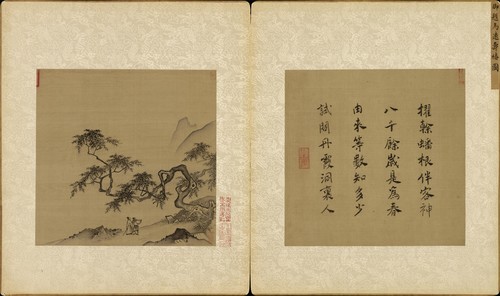 擢榦蟠根伴神
八千餘歲是為春
由來等數知多少
試問丹霞洞裏人